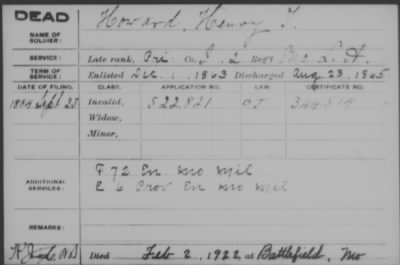 DEAD
NAME OF SOLDIER: Howard, Henry T.
SERVICE: Late rank, Pri Co. I, 2 Reg't Mo L. A.
TERM OF SERVICE: Enlisted Dec. 1, 1863 Discharged Aug 23, 1865
DATE OF FILING. CLASS. APPLICATION NO. LAW. CERTIFICATE NO.
1884 Sept 25 Invalid, 522821 344814
Widow,
Minor,
ADDITIONAL SERVICES: F 72 En Mo Mil
E 6 Prov En Mo Mil
REMARKS:
Died Feb 2, 1922, at Battlefield, Mo